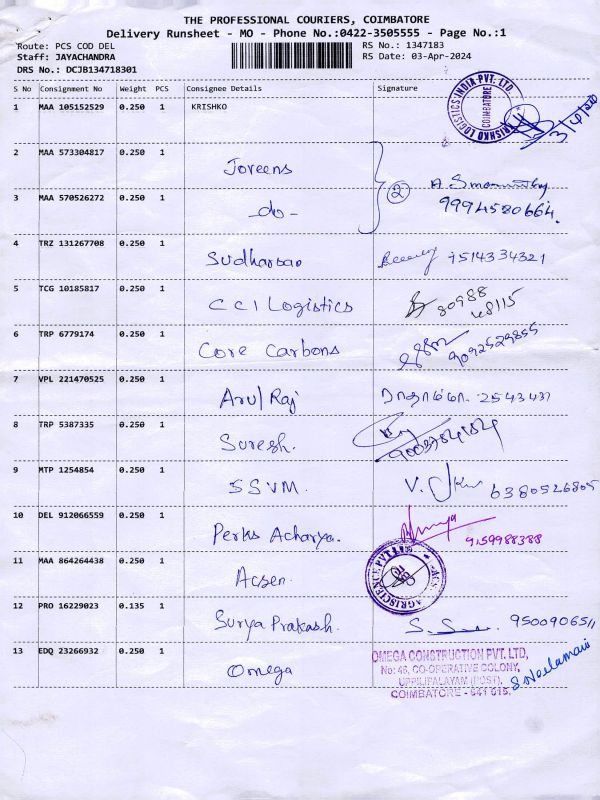 THE PROFESSIONAL COURIERS, COIMBATORE
Delivery Runsheet - MO - Phone No.:0422-3505555 - Page No.:1
Route: PCS COD DEL
RS No.: 1347183
Staff: JAYACHANDRA
RS Date: 03-Apr-2024
DRS No.: DCJB134718301
S No Consignment No Weight PCS Consignee Details Signature
1 MAA 105152529 0.250 1 KRISHKO
KRISHKO LOGISTICS INDIA PVT. LTD. COIMBATORE
2 MAA 573304817 0.250 1 Joreens
3 MAA 570526272 0.250 1 -do- 2 9994580664.
4 TRZ 131267708 0.250 1 Sudharsan 7514334321
5 TCG 10185817 0.250 1 CCI Logistics 80988
48115
6 TRP 6779174 0.250 1 Core Carbons 9092529855
7 VPL 221470525 0.250 1 Arul Raj 2543437
8 TRP 5387335 0.250 1 Suresh.
9 MTP 1254854 0.250 1 SSVM. 6380526805
10 DEL 912066559 0.250 1 Perks Acharya. 9159988388
11 MAA 864264438 0.250 1 Acsen
ACSEN AGRISCIENCE PVT LTD
12 PRO 16229023 0.135 1 Surya Prakash. 9500906511
13 EDQ 23266932 0.250 1 Omega
OMEGA CONSTRUCTION PVT. LTD,
No: 46, CO-OPERATIVE COLONY,
UPPILIPALAYAM (POST),
COIMBATORE - 641 015.
S Neelamani